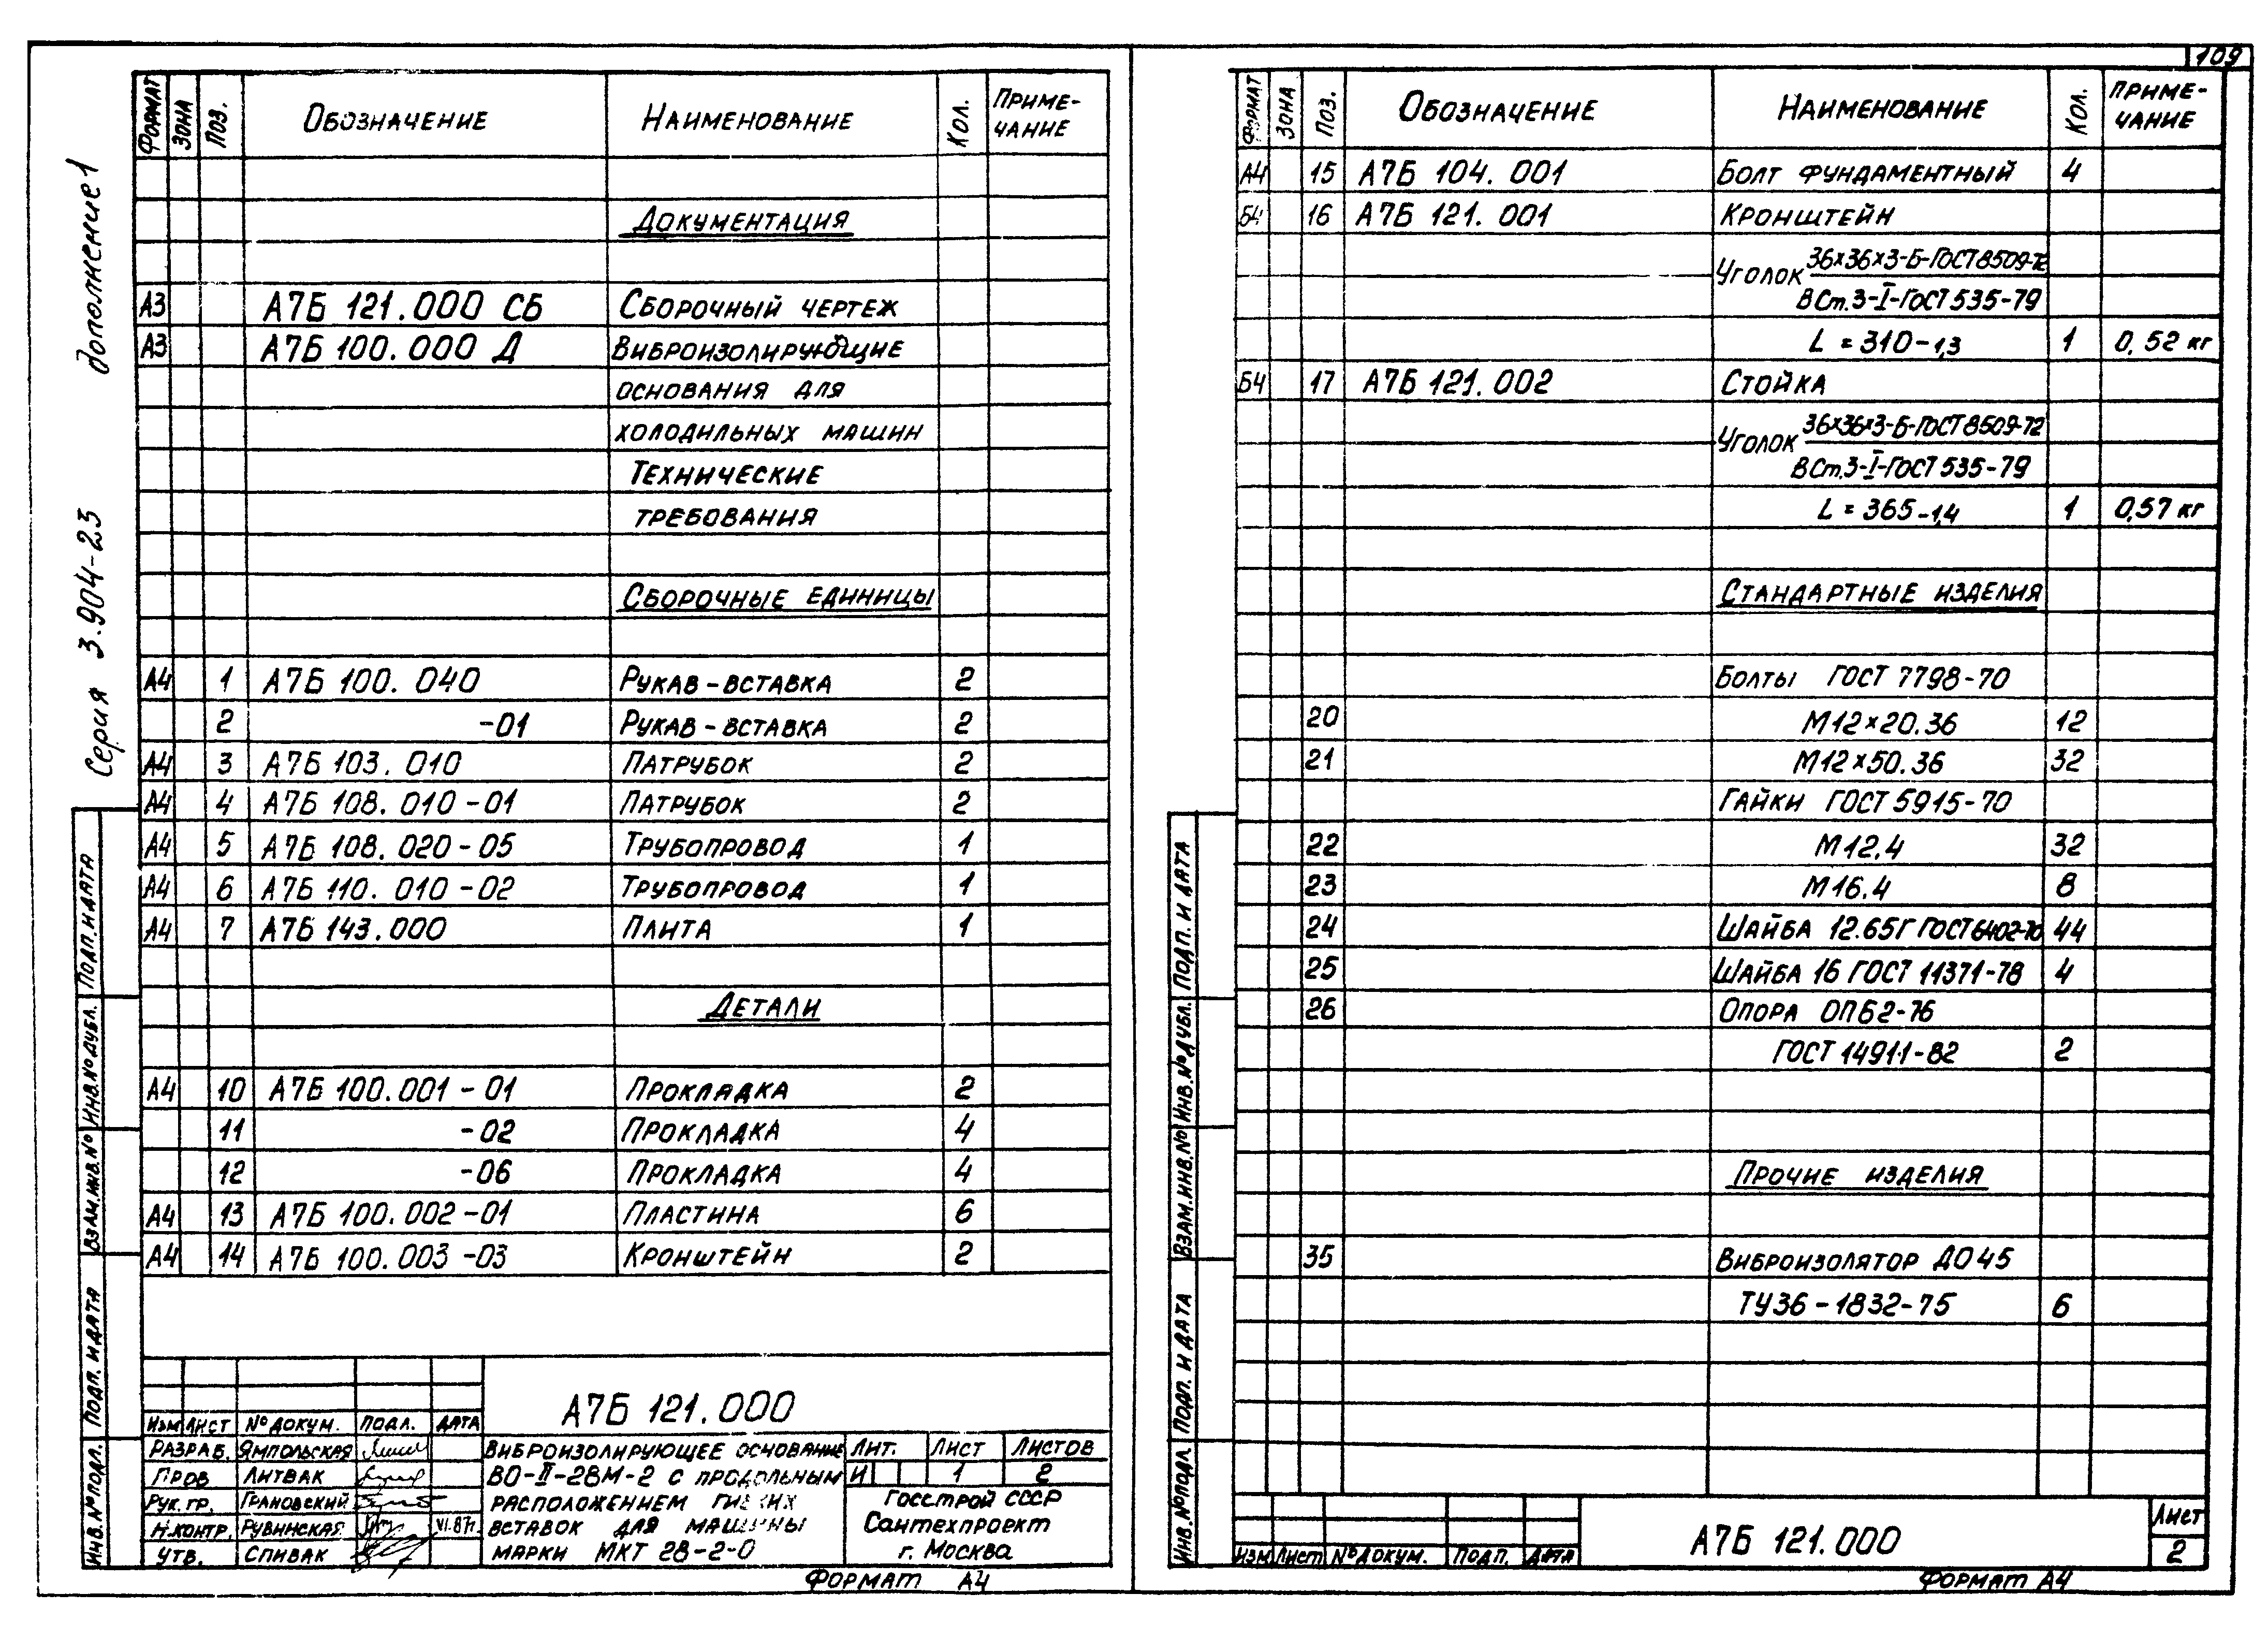 109
Серия 3.904-23 дополнение 1
ФОРМАТ ЗОНА ПОЗ. ОБОЗНАЧЕНИЕ НАИМЕНОВАНИЕ КОЛ. ПРИМЕ-
ЧАНИЕ
ДОКУМЕНТАЦИЯ
А3 А7Б 121.000 СБ СБОРОЧНЫЙ ЧЕРТЕЖ
А3 А7Б 100.000 Д ВИБРОИЗОЛИРУЮЩИЕ
ОСНОВАНИЯ ДЛЯ
ХОЛОДИЛЬНЫХ МАШИН
ТЕХНИЧЕСКИЕ
ТРЕБОВАНИЯ
СБОРОЧНЫЕ ЕДИНИЦЫ
А4 1 А7Б 100.040 РУКАВ-ВСТАВКА 2
2 -01 РУКАВ-ВСТАВКА 2
А4 3 А7Б 103.010 ПАТРУБОК 2
А4 4 А7Б 108.010-01 ПАТРУБОК 2
А4 5 А7Б 108.020-05 ТРУБОПРОВОД 1
А4 6 А7Б 110.010-02 ТРУБОПРОВОД 1
А4 7 А7Б 143.000 ПЛИТА 1
ДЕТАЛИ
А4 10 А7Б 100.001-01 ПРОКЛАДКА 2
11 -02 ПРОКЛАДКА 4
12 -06 ПРОКЛАДКА 4
А4 13 А7Б 100.002-01 ПЛАСТИНА 6
А4 14 А7Б 100.003-03 КРОНШТЕЙН 2
ПОДП. И ДАТА
ИНВ.№ ДУБЛ.
ВЗАМ.ИНВ.№
ПОДП. И ДАТА
ИНВ.№ ПОДЛ.
А7Б 121.000
ИЗМ ЛИСТ № ДОКУМ. ПОДП. ДАТА
РАЗРАБ. ЯМПОЛЬСКАЯ
ПРОВ ЛИТВАК
РУК. ГР. ГРАНОВСКИЙ
Н.КОНТР. РУВИНСКАЯ VI.87г.
УТВ. СПИВАК
ВИБРОИЗОЛИРУЮЩЕЕ ОСНОВАНИЕ
ВО-II-28М-2 С ПРОДОЛЬНЫМ
РАСПОЛОЖЕНИЕМ ГИБКИХ
ВСТАВОК ДЛЯ МАШИНЫ
МАРКИ МКТ 28-2-0
ЛИТ. ЛИСТ ЛИСТОВ
И 1 2
ГОССТРОЙ СССР
САНТЕХПРОЕКТ
г. МОСКВА
ФОРМАТ А4
ФОРМАТ ЗОНА ПОЗ. ОБОЗНАЧЕНИЕ НАИМЕНОВАНИЕ КОЛ. ПРИМЕ-
ЧАНИЕ
А4 15 А7Б 104.001 БОЛТ ФУНДАМЕНТНЫЙ 4
Б4 16 А7Б 121.001 КРОНШТЕЙН
УГОЛОК 36×36×3-Б-ГОСТ 8509-72
ВСт.3-I-ГОСТ 535-79
L = 310-1,3 1 0,52 кг
Б4 17 А7Б 121.002 СТОЙКА
УГОЛОК 36×36×3-Б-ГОСТ 8509-72
ВСт.3-I-ГОСТ 535-79
L = 365-1,4 1 0,57 кг
СТАНДАРТНЫЕ ИЗДЕЛИЯ
БОЛТЫ ГОСТ 7798-70
20 М12×20.36 12
21 М12×50.36 32
ГАЙКИ ГОСТ 5915-70
22 М12.4 32
23 М16.4 8
24 ШАЙБА 12.65Г ГОСТ 6402-70 44
25 ШАЙБА 16 ГОСТ 11371-78 4
26 ОПОРА ОПБ2-76
ГОСТ 14911-82 2
ПРОЧИЕ ИЗДЕЛИЯ
35 ВИБРОИЗОЛЯТОР ДО 45
ТУ36-1832-75 6
ПОДП. И ДАТА
ИНВ.№ ДУБЛ.
ВЗАМ.ИНВ.№
ПОДП. И ДАТА
ИНВ.№ ПОДЛ.
ИЗМ ЛИСТ № ДОКУМ. ПОДП. ДАТА
А7Б 121.000
ЛИСТ
2
ФОРМАТ А4